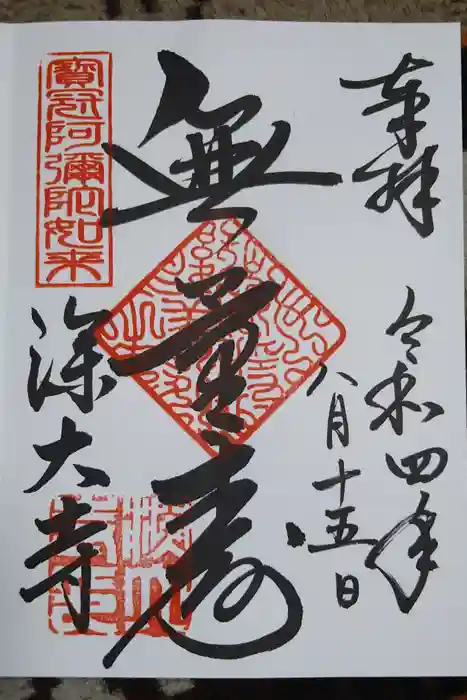 奉拝
令和四年
八月十五日
無量壽
寶冠阿彌陀如来
深大寺